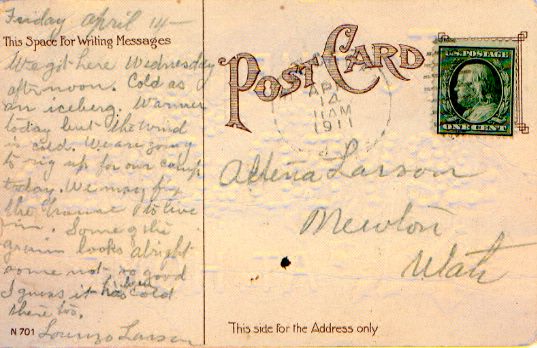 Friday April 14—
This Space For Writing Messages
We got here Wednesday
afternoon. Cold as
an iceberg. Warmer
today but the wind
is cold. We are going
to rig up for our camp
today. We may fix
the to live
in. Some of the
grain looks alright
some not so good
I guess it has been cold
there too.
Lorenzo Larson
N 701
POST CARD
APR
14
11 AM
1911
U.S. POSTAGE
ONE CENT
Althena Larson
Newton
Utah
This side for the Address only